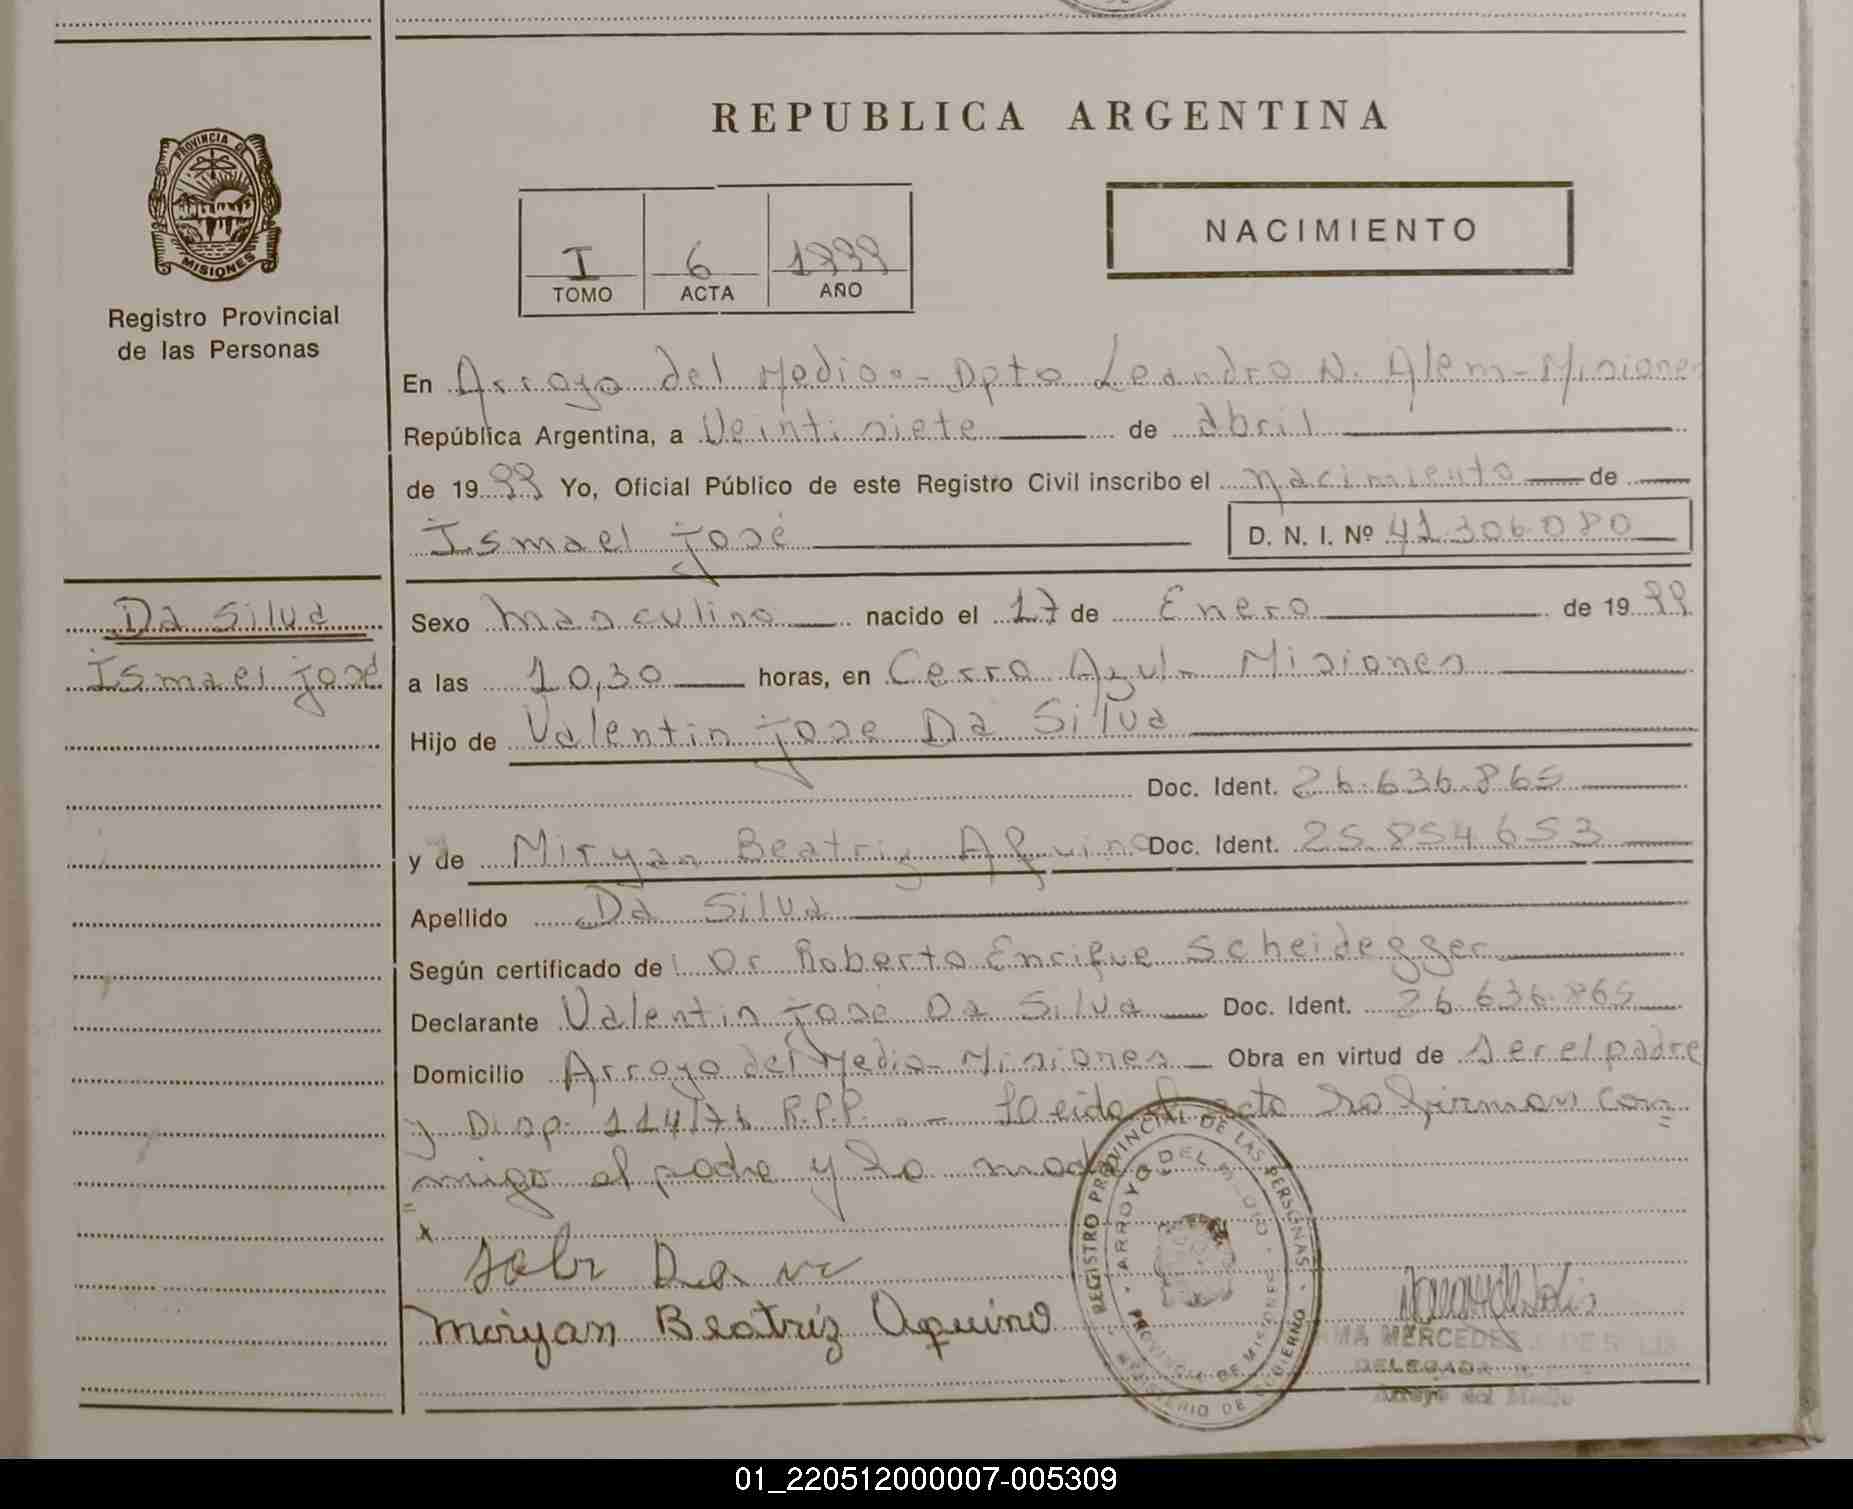 REPUBLICA ARGENTINA
PROVINCIA DE
MISIONES
Registro Provincial
de las Personas
I 6 1999
TOMO ACTA AÑO
NACIMIENTO
En Arroyo del Medio.- Dpto Leandro N. Alem - Misiones
República Argentina, a Veintisiete de abril
de 1999 Yo, Oficial Público de este Registro Civil inscribo el nacimiento de
Ismael josé D. N. I. Nº 41.306.080
Da Silva
Ismael josé
Sexo masculino nacido el 17 de Enero de 1999
a las 10,30 horas, en Cerro Azul - Misiones
Hijo de Valentin jose Da Silva
Doc. Ident. 26.636.865
y de Miryan Beatriz Aquino Doc. Ident. 25.854.653
Apellido Da Silva
Según certificado de Dr Roberto Enrique Scheidegger
Declarante Valentin josé Da Silva Doc. Ident. 26.636.865
Domicilio Arroyo del Medio - Misiones Obra en virtud de ser el padre
y Disp. 114/76 R.P.P. .- Leida el acta la firman con=
=migo el padre y la madre
x
Miryan Beatriz Aquino
REGISTRO PROVINCIAL DE LAS PERSONAS
MINISTERIO DE GOBIERNO
ARROYO DEL MEDIO
PROVINCIA DE MISIONES
MERCEDES
DELEGADA
Arroyo del Medio
01_220512000007-005309